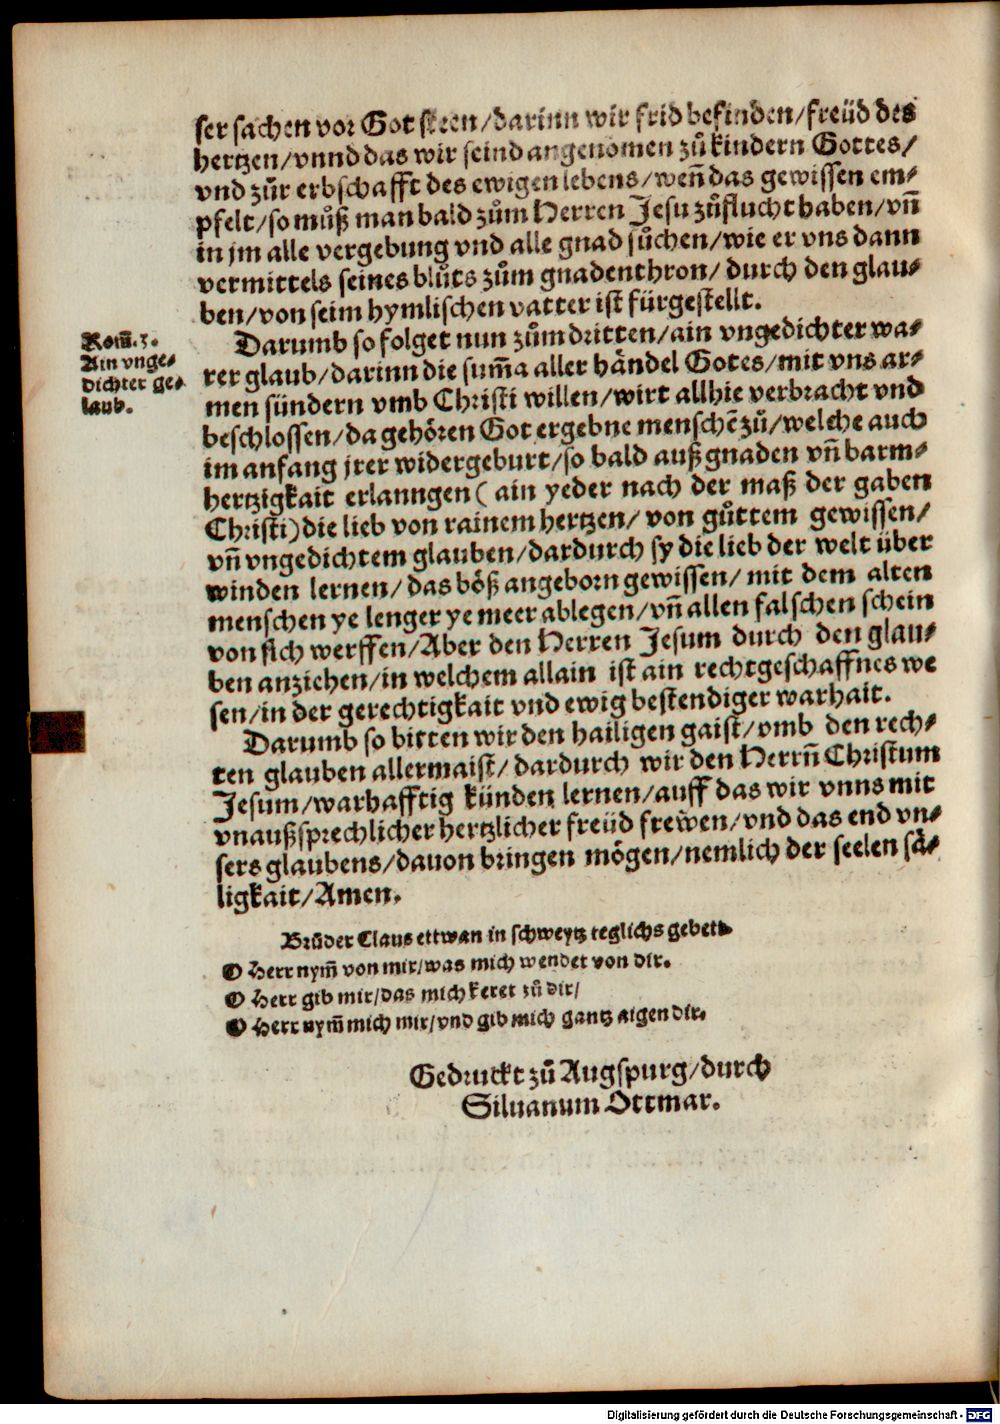 ser sachen vor Got steen/darinn wir frid befinden/freüd des
hertzen/vnnd das wir seind angenomen zů kindern Gottes/
vnd zůr erbschafft des ewigen lebens/weñ das gewissen em⸗
pfelt/so můß man bald zům Herren Jesu zůflucht haben/vñ
in jm alle vergebung vnd alle gnad sůchen/wie er vns dann
vermittels seines blůts zům gnadenthron/ durch den glau⸗
ben/von seim hymlischen vatter ist fürgestellt.
Rom̃.3.
Ain vnge⸗
dichter ge⸗
laub.
Darumb so folget nun zům dritten/ain vngedichter wa⸗
rer glaub/darinn die sum̃a aller händel Gotes/mit vns ar⸗
men sündern vmb Christi willen/wirt allhie verbracht vnd
beschlossen/da gehören Got ergebne menschẽ zů/welche auch
im anfang jrer widergeburt/so bald auß gnaden vñ barm⸗
hertzigkait erlanngen( ain yeder nach der maß der gaben
Christi)die lieb von rainem hertzen/ von gůttem gewissen/
vñ vngedichtem glauben/dardurch sy die lieb der welt über
winden lernen/das böß angeborn gewissen/ mit dem alten
menschen ye lenger ye meer ablegen/vñ allen falschen schein
von sich werffen/Aber den Herren Jesum durch den glau⸗
ben anziehen/in welchem allain ist ain rechtgeschaffnes we
sen/in der gerechtigkait vnd ewig bestendiger warhait.
Darumb so bitten wir den hailigen gaist/vmb den rech⸗
ten glauben allermaist/ dardurch wir den Herrñ Christum
Jesum/warhafftig künden lernen/auff das wir vnns mit
vnaußsprechlicher hertzlicher freüd frewen/vnd das end vn⸗
sers glaubens/dauon bringen mögen/nemlich der seelen sä⸗
ligkait/Amen.
Brůder Claus ettwan in schweytz teglichs gebett.
O Herr nym̃ von mir/was mich wendet von dir.
O Herr gib mir/das mich keret zů dir/
O Herr nym̃ mich mir/vnd gib mich gantz aigen dir.
Gedruckt zů Augspurg/durch
Siluanum Ottmar.
Digitalisierung gefördert durch die Deutsche Forschungsgemeinschaft - DFG